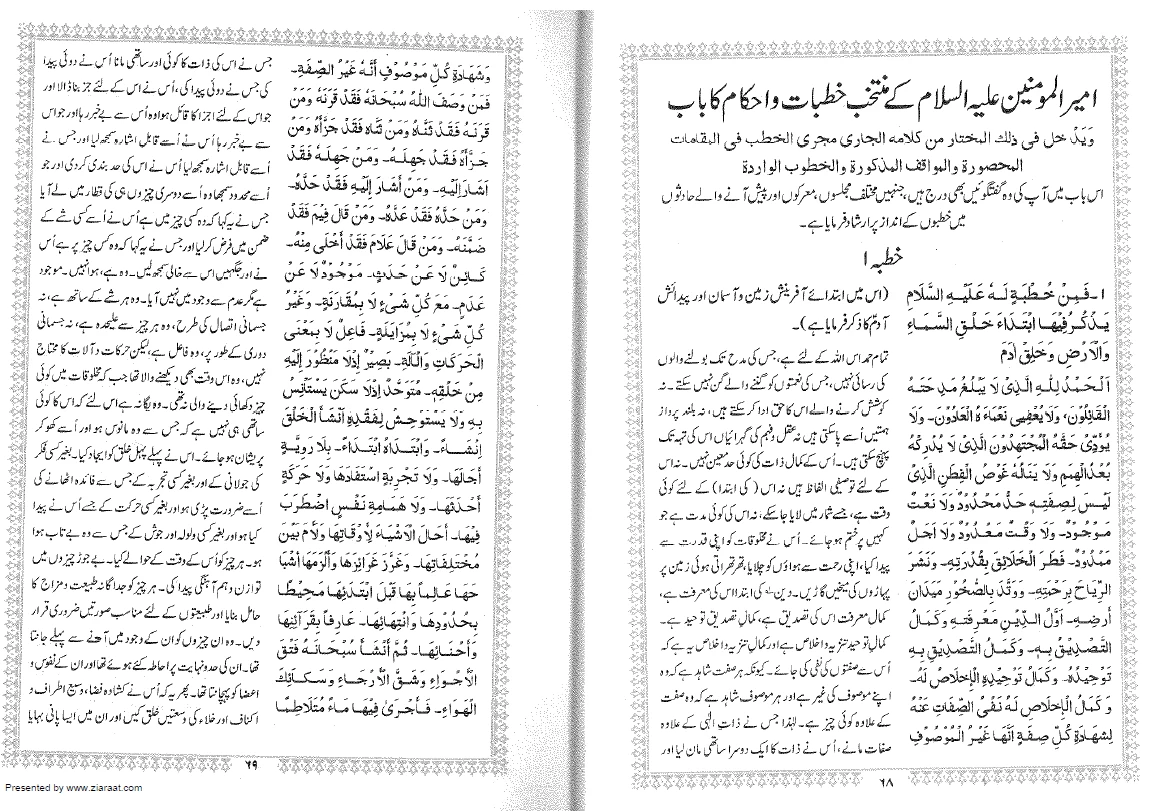 امیرالمومنین علیہ السلام کے منتخب خطبات و احکام کا باب
وَیَدْ خل فی ذلك المختار من كلامه الجاری مجری الخطب فی المقامات
المحصورة والمواقف المذكورة والخطوب الواردة
اس باب میں آپ کی وہ گفتگوئیں بھی درج ہیں، جنہیں مختلف مجلسوں، معرکوں اور پیش آنے والے حادثوں
میں خطبوں کے انداز پر ارشاد فرمایا ہے۔
خطبہ ۱
۱۔فَمِنْ خُطْبَةٍ لَهٗ عَلَیْهِ السَّلَامُ
یَذْكُرُ فِیْهَا ابْتِدَاءَ خَلْقِ السَّمَاءِ
وَالْاَرْضِ وَخَلْقِ اٰدَمَ
اَلْحَمْدُ لِلّٰهِ الَّذِیْ لَا یَبْلُغُ مِدْحَتَهُ
الْقَائِلُوْنَ، وَلَا یُحْصِیْ نَعْمَاءَهُ الْعَادُّوْنَ۔ وَلَا
یُؤَدِّیْ حَقَّهُ الْمُجْتَهِدُوْنَ الَّذِیْ لَا یُدْرِكُهٗ
بُعْدُ الْهِمَمِ وَلَا یَنَالُهٗ غَوْصُ الْفِطَنِ الَّذِیْ
لَیْسَ لِصِفَتِهٖ حَدٌّ مَحْدُوْدٌ وَلَا نَعْتٌ
مَوْجُوْدٌ۔ وَلَا وَقْتٌ مَعْدُوْدٌ وَلَا اَجَلٌ
مَمْدُوْدٌ۔ فَطَرَ الْخَلَائِقَ بِقُدْرَتِهٖ۔ وَنَشَرَ
الرِّیَاحَ بِرَحْمَتِهٖ۔ وَوَتَّدَ بِالصُّخُوْرِ مَیَدَانَ
اَرْضِهٖ۔ اَوَّلُ الدِّیْنِ مَعْرِفَتُهٗ وَكَمَالُ
التَّصْدِیْقِ بِهٖ۔ وَكَمَالُ التَّصْدِیْقِ بِهٖ
تَوْحِیْدُهٗ۔ وَكَمَالُ تَوْحِیْدِهِ الْاِخْلَاصُ لَهٗ۔
وَكَمَالُ الْاِخْلَاصِ لَهٗ نَفْیُ الصِّفَاتِ عَنْهُ
لِشَهَادَةِ كُلِّ صِفَةٍ اَنَّهَا غَیْرُ الْمَوْصُوْفِ
(اس میں ابتدائے آفرینش زمین و آسمان اور پیدائش
آدمؑ کا ذکر فرمایا ہے)۔
تمام حمد اس اللہ کے لئے ہے، جس کی مدح تک بولنے والوں
کی رسائی نہیں، جس کی نعمتوں کو گننے والے گن نہیں سکتے۔ نہ
کوشش کرنے والے اس کا حق ادا کرسکتے ہیں، نہ بلند پرواز
ہمتیں اُسے پاسکتی ہیں نہ عقل و فہم کی گہرائیاں اس کی تہہ تک
پہنچ سکتی ہیں۔ اُس کے کمال ذات کی کوئی حد معین نہیں۔ نہ اس
کے لئے توصیفی الفاظ ہیں نہ اس (کی ابتدا) کے لئے کوئی
وقت ہے، جسے شمار میں لایا جاسکے، نہ اس کی کوئی مدت ہے جو
کہیں پر ختم ہوجائے۔ اُس نے مخلوقات کو اپنی قدرت سے
پیدا کیا، اپنی رحمت سے ہواؤں کو چلایا، تھرتھراتی ہوئی زمین پر
پہاڑوں کی میخیں گاڑیں۔ دین کی ابتدا اس کی معرفت ہے،
کمال معرفت اس کی تصدیق ہے، کمالِ تصدیق توحید ہے۔
کمالِ توحید تنزیہ و اخلاص ہے اور کمالِ تنزیہ و اخلاص یہ ہے کہ
اُس سے صفتوں کی نفی کی جائے۔ کیونکہ ہر صفت شاہد ہے کہ وہ
اپنے موصوف کی غیر ہے اور ہر موصوف شاہد ہے کہ وہ صفت
کے علاوہ کوئی چیز ہے۔ لہٰذا جس نے ذات الٰہی کے علاوہ
صفات مانے، اُس نے ذات کا ایک دوسرا ساتھی مان لیا اور
۶۸
وَشَهَادَةِ كُلِّ مَوْصُوْفٍ اَنَّهٗ غَیْرُ الصِّفَةِ۔
فَمَنْ وَصَفَ اللّٰهَ سُبْحَانَهٗ فَقَدْ قَرَنَهٗ وَمَنْ
قَرَنَهٗ فَقَدْ ثَنَّاهُ وَمَنْ ثَنَّاهُ فَقَدْ جَزَّأَهٗ وَمَنْ
جَزَّأَهٗ فَقَدْ جَهِلَهٗ۔ وَمَنْ جَهِلَهٗ فَقَدْ
اَشَارَ اِلَیْهِ۔ وَمَنْ اَشَارَ اِلَیْهِ فَقَدْ حَدَّهٗ۔
وَمَنْ حَدَّهٗ فَقَدْ عَدَّهٗ۔ وَمَنْ قَالَ فِیْمَ فَقَدْ
ضَمَّنَهٗ۔ وَمَنْ قَالَ عَلَامَ فَقَدْ اَخْلٰی مِنْهُ۔
كَائِنٌ لَا عَنْ حَدَثٍ۔ مَوْجُوْدٌ لَا عَنْ
عَدَمٍ۔ مَعَ كُلِّ شَیْءٍ لَا بِمُقَارَنَةٍ۔ وَغَیْرُ
كُلِّ شَیْءٍ لَا بِمُزَایَلَةٍ۔ فَاعِلٌ لَا بِمَعْنَی
الْحَرَكَاتِ وَالْاٰلَةِ۔ بَصِیْرٌ اِذْ لَا مَنْظُوْرَ اِلَیْهِ
مِنْ خَلْقِهٖ۔ مُتَوَحِّدٌ اِذْ لَا سَكَنَ یَسْتَاْنِسُ
بِهٖ وَلَا یَسْتَوْحِشُ لِفَقْدِهٖ اَنْشَاَ الْخَلْقَ
اِنْشَاءً۔ وَابْتَدَاَهُ ابْتِدَاءً۔ بِلَا رَوِیَّةٍ
اَجَالَهَا۔ وَلَا تَجْرِبَةٍ اسْتَفَادَهَا وَلَا حَرَكَةٍ
اَحْدَثَهَا۔ وَلَا هَمَامَةِ نَفْسٍ اضْطَرَبَ
فِیْهَا۔ اَحَالَ الْاَشْیَاءَ لِاَوْقَاتِهَا وَلَاَمَ بَیْنَ
مُخْتَلِفَاتِهَا۔ وَغَرَّزَ غَرَائِزَهَا وَاَلْزَمَهَا اَشْبَا
حَهَا عَالِمًا بِهَا قَبْلَ ابْتِدَائِهَا مُحِیْطًا
بِحُدُوْدِهَا وَانْتِهَائِهَا۔ عَارِفًا بِقَرَائِنِهَا
وَاَحْنَائِهَا۔ ثُمَّ اَنْشَاَ سُبْحَانَهٗ فَتْقَ
الْاَجْوَاءِ وَشَقَّ الْاَرْجَاءِ وَسَكَائِكَ
الْهَوَاءِ۔ فَاَجْرٰی فِیْهَا مَاءً مُتَلَاطِمًا
جس نے اس کی ذات کا کوئی اور ساتھی مانا اُس نے دوئی پیدا
کی جس نے دوئی پیدا کی، اُس نے اس کے لئے جز بنا ڈالا اور
جو اس کے لئے اجزا کا قائل ہوا وہ اُس سے بے خبر رہا اور جو اس
سے بے خبر رہا اُس نے اسے قابل اشارہ سمجھ لیا اور جس نے
اُسے قابل اشارہ سمجھ لیا اُس نے اس کی حد بندی کردی اور جو
اُسے محدود سمجھا وہ اسے دوسری چیزوں ہی کی قطار میں لے آیا
جس نے یہ کہا کہ وہ کسی چیز میں ہے اُس نے اُسے کسی شے کے
ضمن میں فرض کرلیا اور جس نے یہ کہا کہ وہ کس چیز پر ہے اُس
نے اور جگہیں اس سے خالی سمجھ لیں۔ وہ ہے، ہوا نہیں۔ موجود
ہے مگر عدم سے وجود میں نہیں آیا۔ وہ ہر شے کے ساتھ ہے، نہ
جسمانی اتصال کی طرح، وہ ہر چیز سے علیحدہ ہے، نہ جسمانی
دوری کے طور پر، وہ فاعل ہے، لیکن حرکات و آلات کا محتاج
نہیں، وہ اس وقت بھی دیکھنے والا تھا جب کہ مخلوقات میں کوئی
چیز دکھائی دینے والی نہ تھی۔ وہ یگانہ ہے اس لئے کہ اس کا کوئی
ساتھی ہی نہیں ہے کہ جس سے وہ مانوس ہو اور اُسے کھو کر
پریشان ہوجائے۔ اس نے پہلے پہل خلق کو ایجاد کیا۔ بغیر کسی فکر
کی جولانی کے اور بغیر کسی تجربہ کے جس سے فائدہ اٹھانے کی
اُسے ضرورت پڑی ہو اور بغیر کسی حرکت کے جسے اُس نے پیدا
کیا ہو اور بغیر کسی ولولہ اور جوش کے جس سے وہ بے تاب ہوا
ہو۔ ہر چیز کو اُس کے وقت کے حوالے کیا۔ بے جوڑ چیزوں میں
توازن و ہم آہنگی پیدا کی۔ ہر چیز کو جداگانہ طبیعت و مزاج کا
حامل بنایا اور طبیعتوں کے لئے مناسب صورتیں ضروری قرار
دیں۔ وہ ان چیزوں کو ان کے وجود میں آنے سے پہلے جانتا
تھا۔ ان کی حد و نہایت پر احاطہ کئے ہوئے تھا اور ان کے نفوس و
اعضا کو پہچانتا تھا۔ پھر یہ کہ اُس نے کشادہ فضا، وسیع اطراف و
اکناف اور خلاء کی وسعتیں خلق کیں اور ان میں ایسا پانی بہایا
۶۹
Presented by www.ziaraat.com